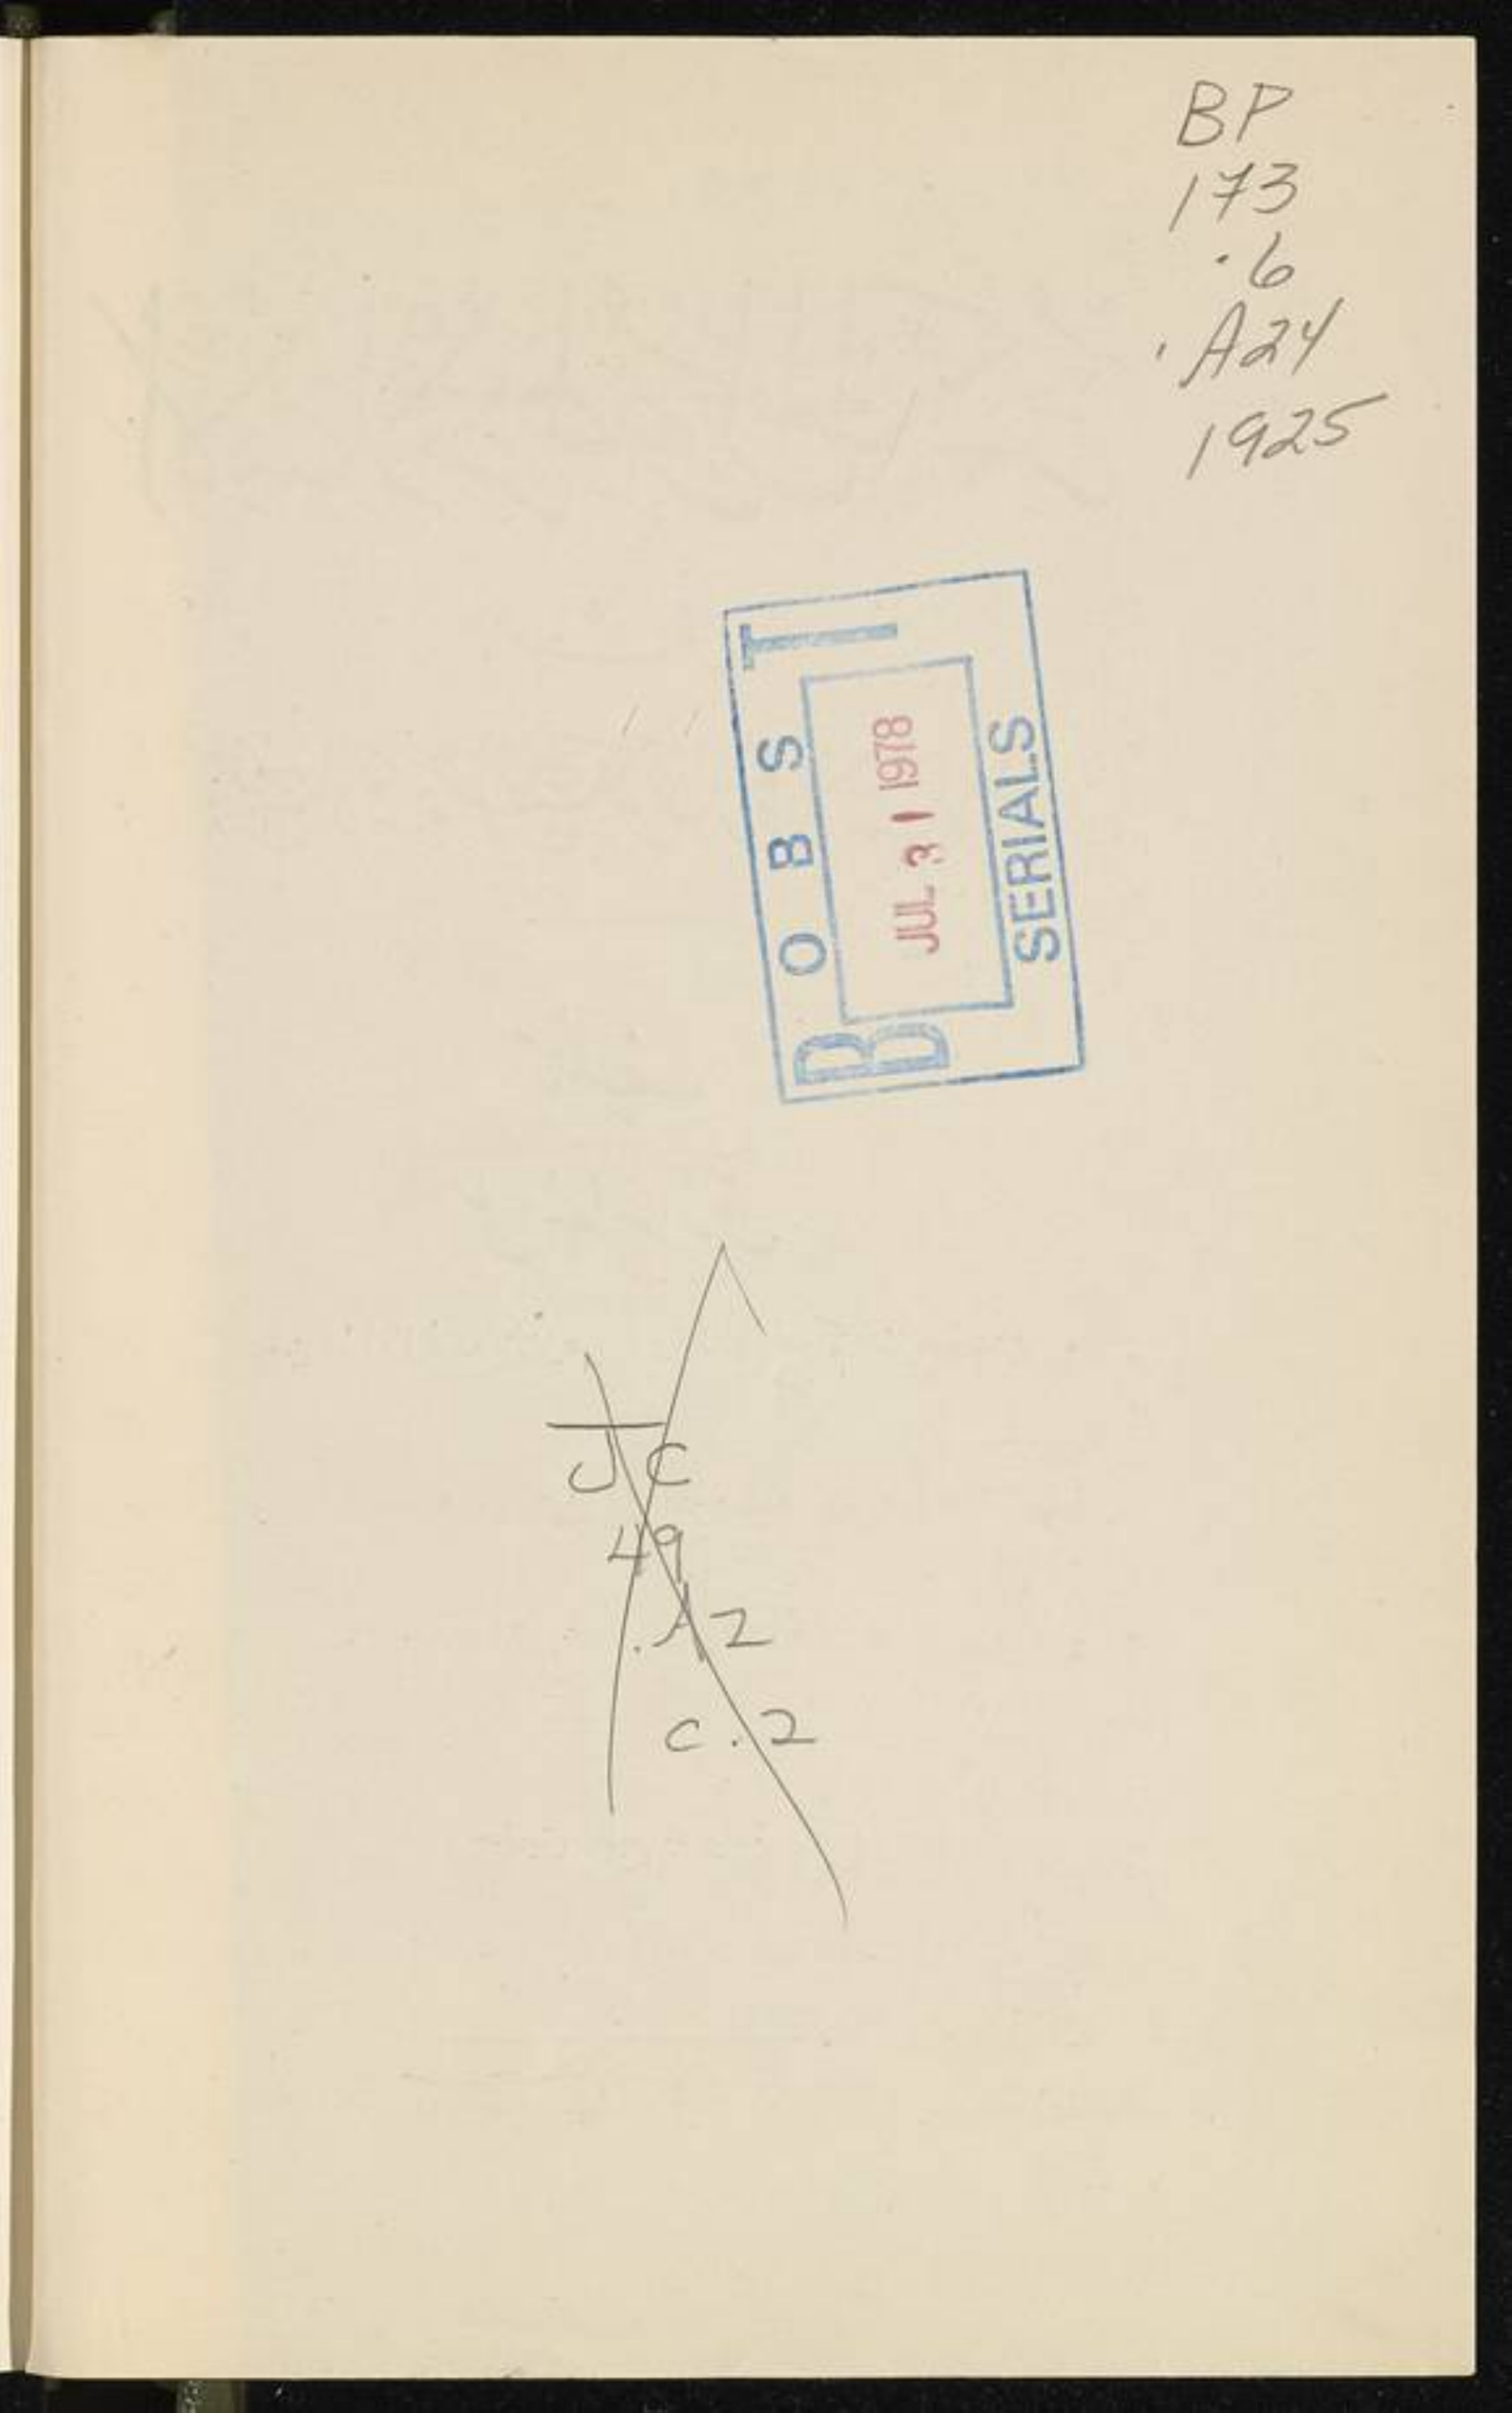 BP
173
.6
.A24
1925
BOBST
JUL 31 1978
SERIALS
JC
49
.A2
C.2